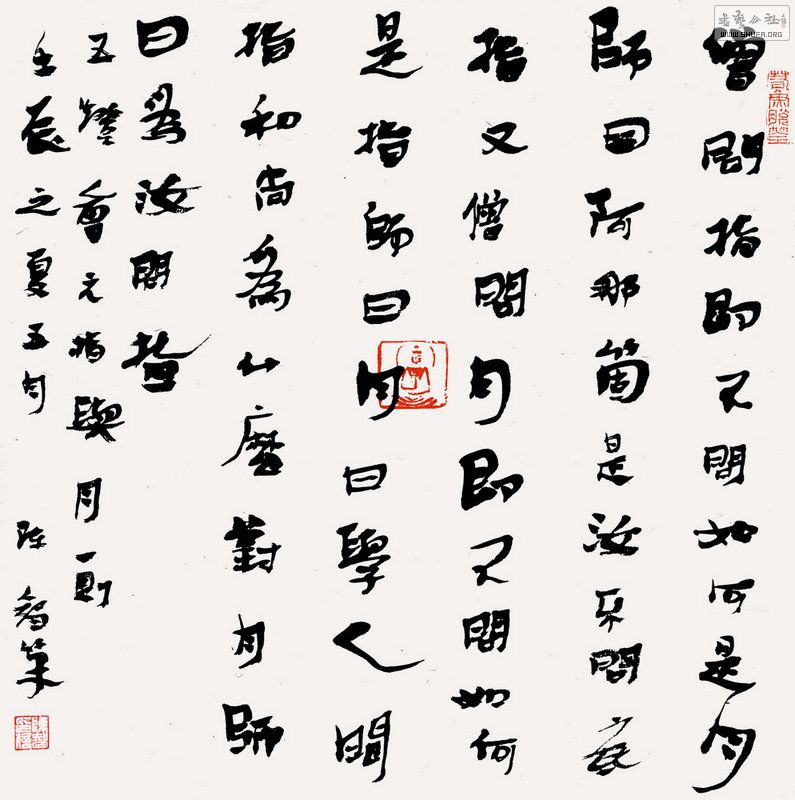 僧問指即不問如何是月
師曰阿那箇是汝不問底
指又僧問月即不問如何
是指師曰月曰學人問
指和尚為什麼對月師
曰為汝問指
五燈會元指與月一則
壬辰之夏五月 陈智策
書藝公社
WWW.SHUFA.ORG